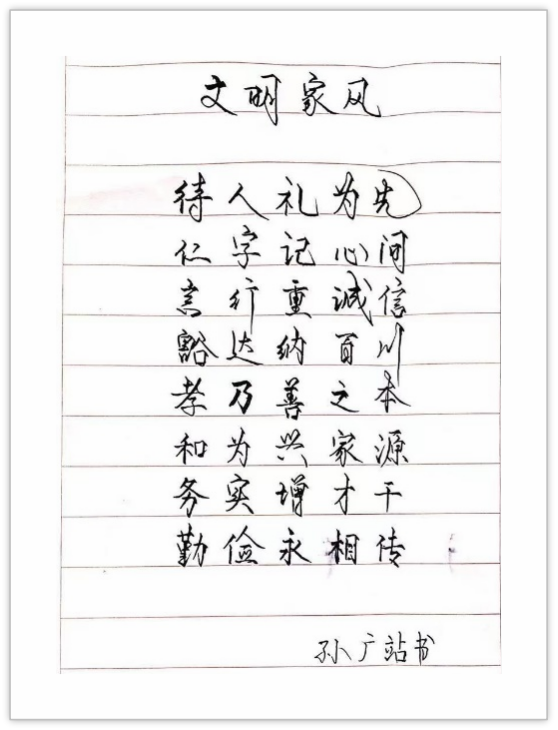 文明家风
待人礼为先
仁字记心间
言行重诚信
豁达纳百川
孝乃善之本
和为兴家源
务实增才干
勤俭永相传
孙广站书